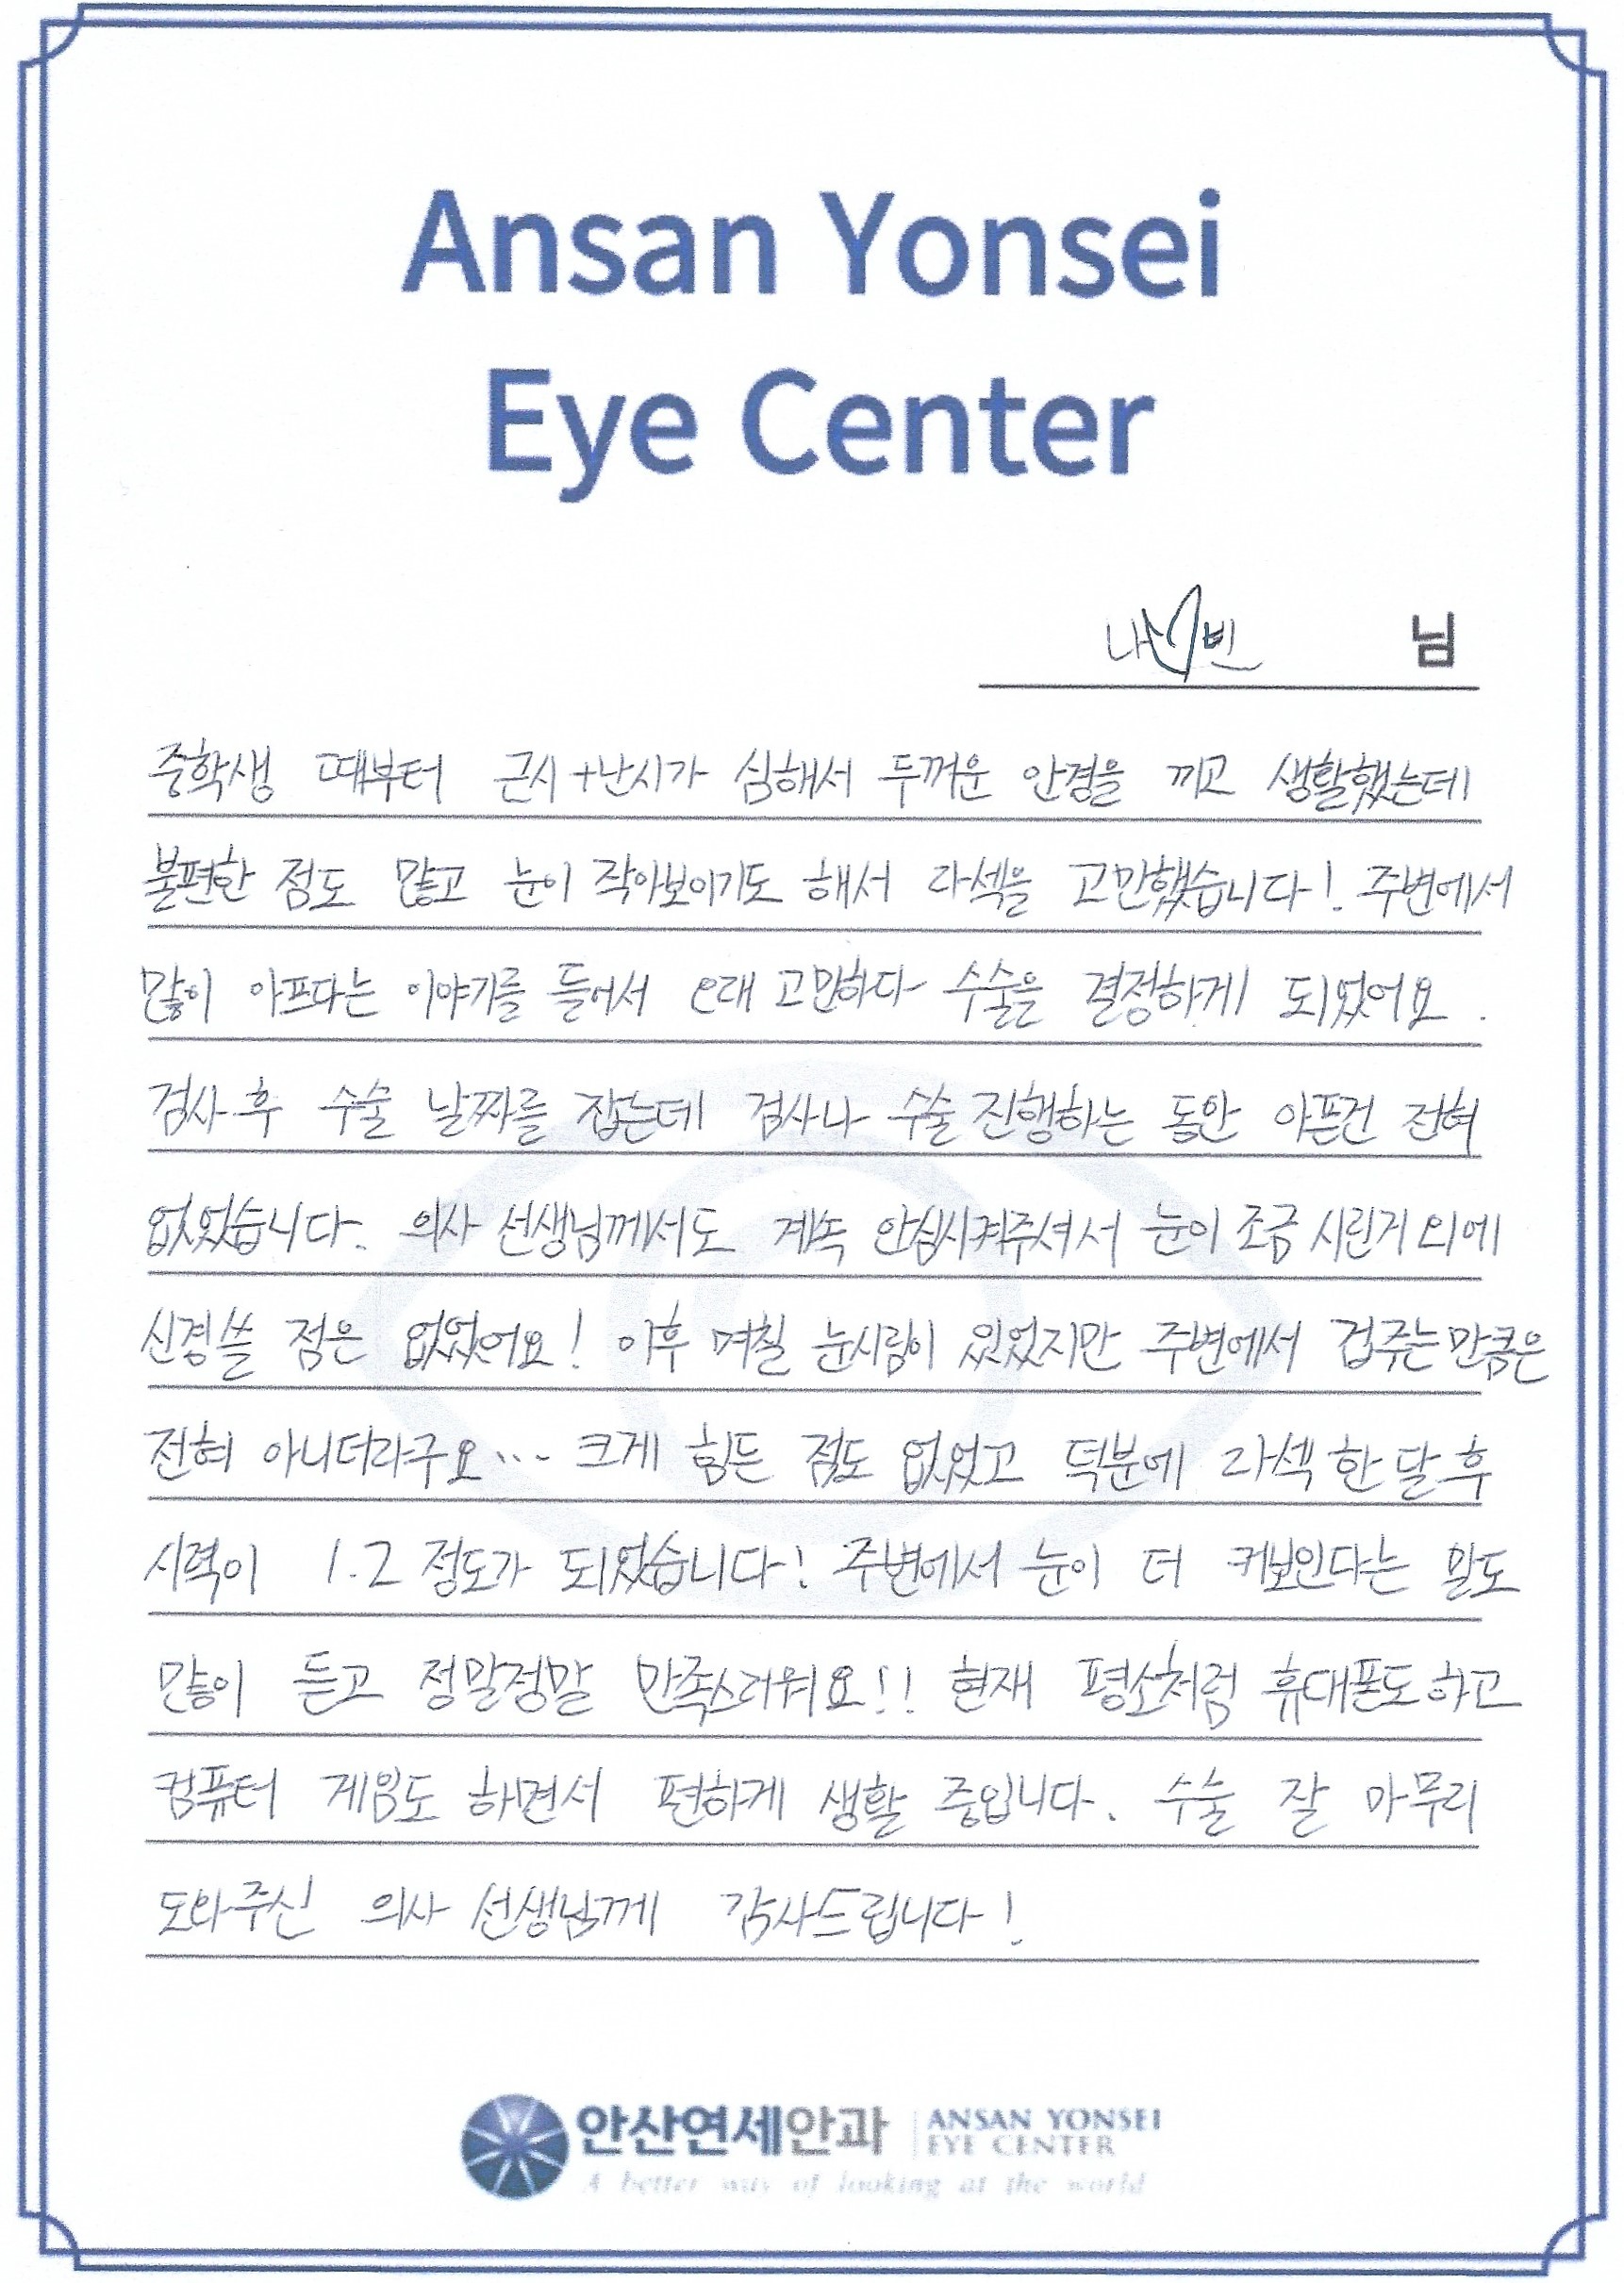 Ansan Yonsei
Eye Center
나 빈 님
중학생 때부터 근시+난시가 심해서 두꺼운 안경을 끼고 생활했는데
불편한 점도 많고 눈이 작아보이기도 해서 라섹을 고민했습니다! 주변에서
많이 아프다는 이야기를 들어서 오래 고민하다 수술을 결정하게 되었어요.
검사 후 수술 날짜를 잡는데 검사나 수술 진행하는 동안 아픈건 전혀
없었습니다. 의사 선생님께서도 계속 안심시켜주셔서 눈이 조금 시린거 외에
신경쓸 점은 없었어요! 이후 며칠 눈시림이 있었지만 주변에서 겁주는만큼은
전혀 아니더라구요... 크게 힘든 점도 없었고 덕분에 라섹 한 달 후
시력이 1.2 정도가 되었습니다! 주변에서 눈이 더 커보인다는 말도
많이 듣고 정말정말 만족스러워요!! 현재 평소처럼 휴대폰도 하고
컴퓨터 게임도 하면서 편하게 생활 중입니다. 수술 잘 마무리
도와주신 의사 선생님께 감사드립니다!
안산연세안과 ANSAN YONSEI
EYE CENTER
A better way of looking at the world